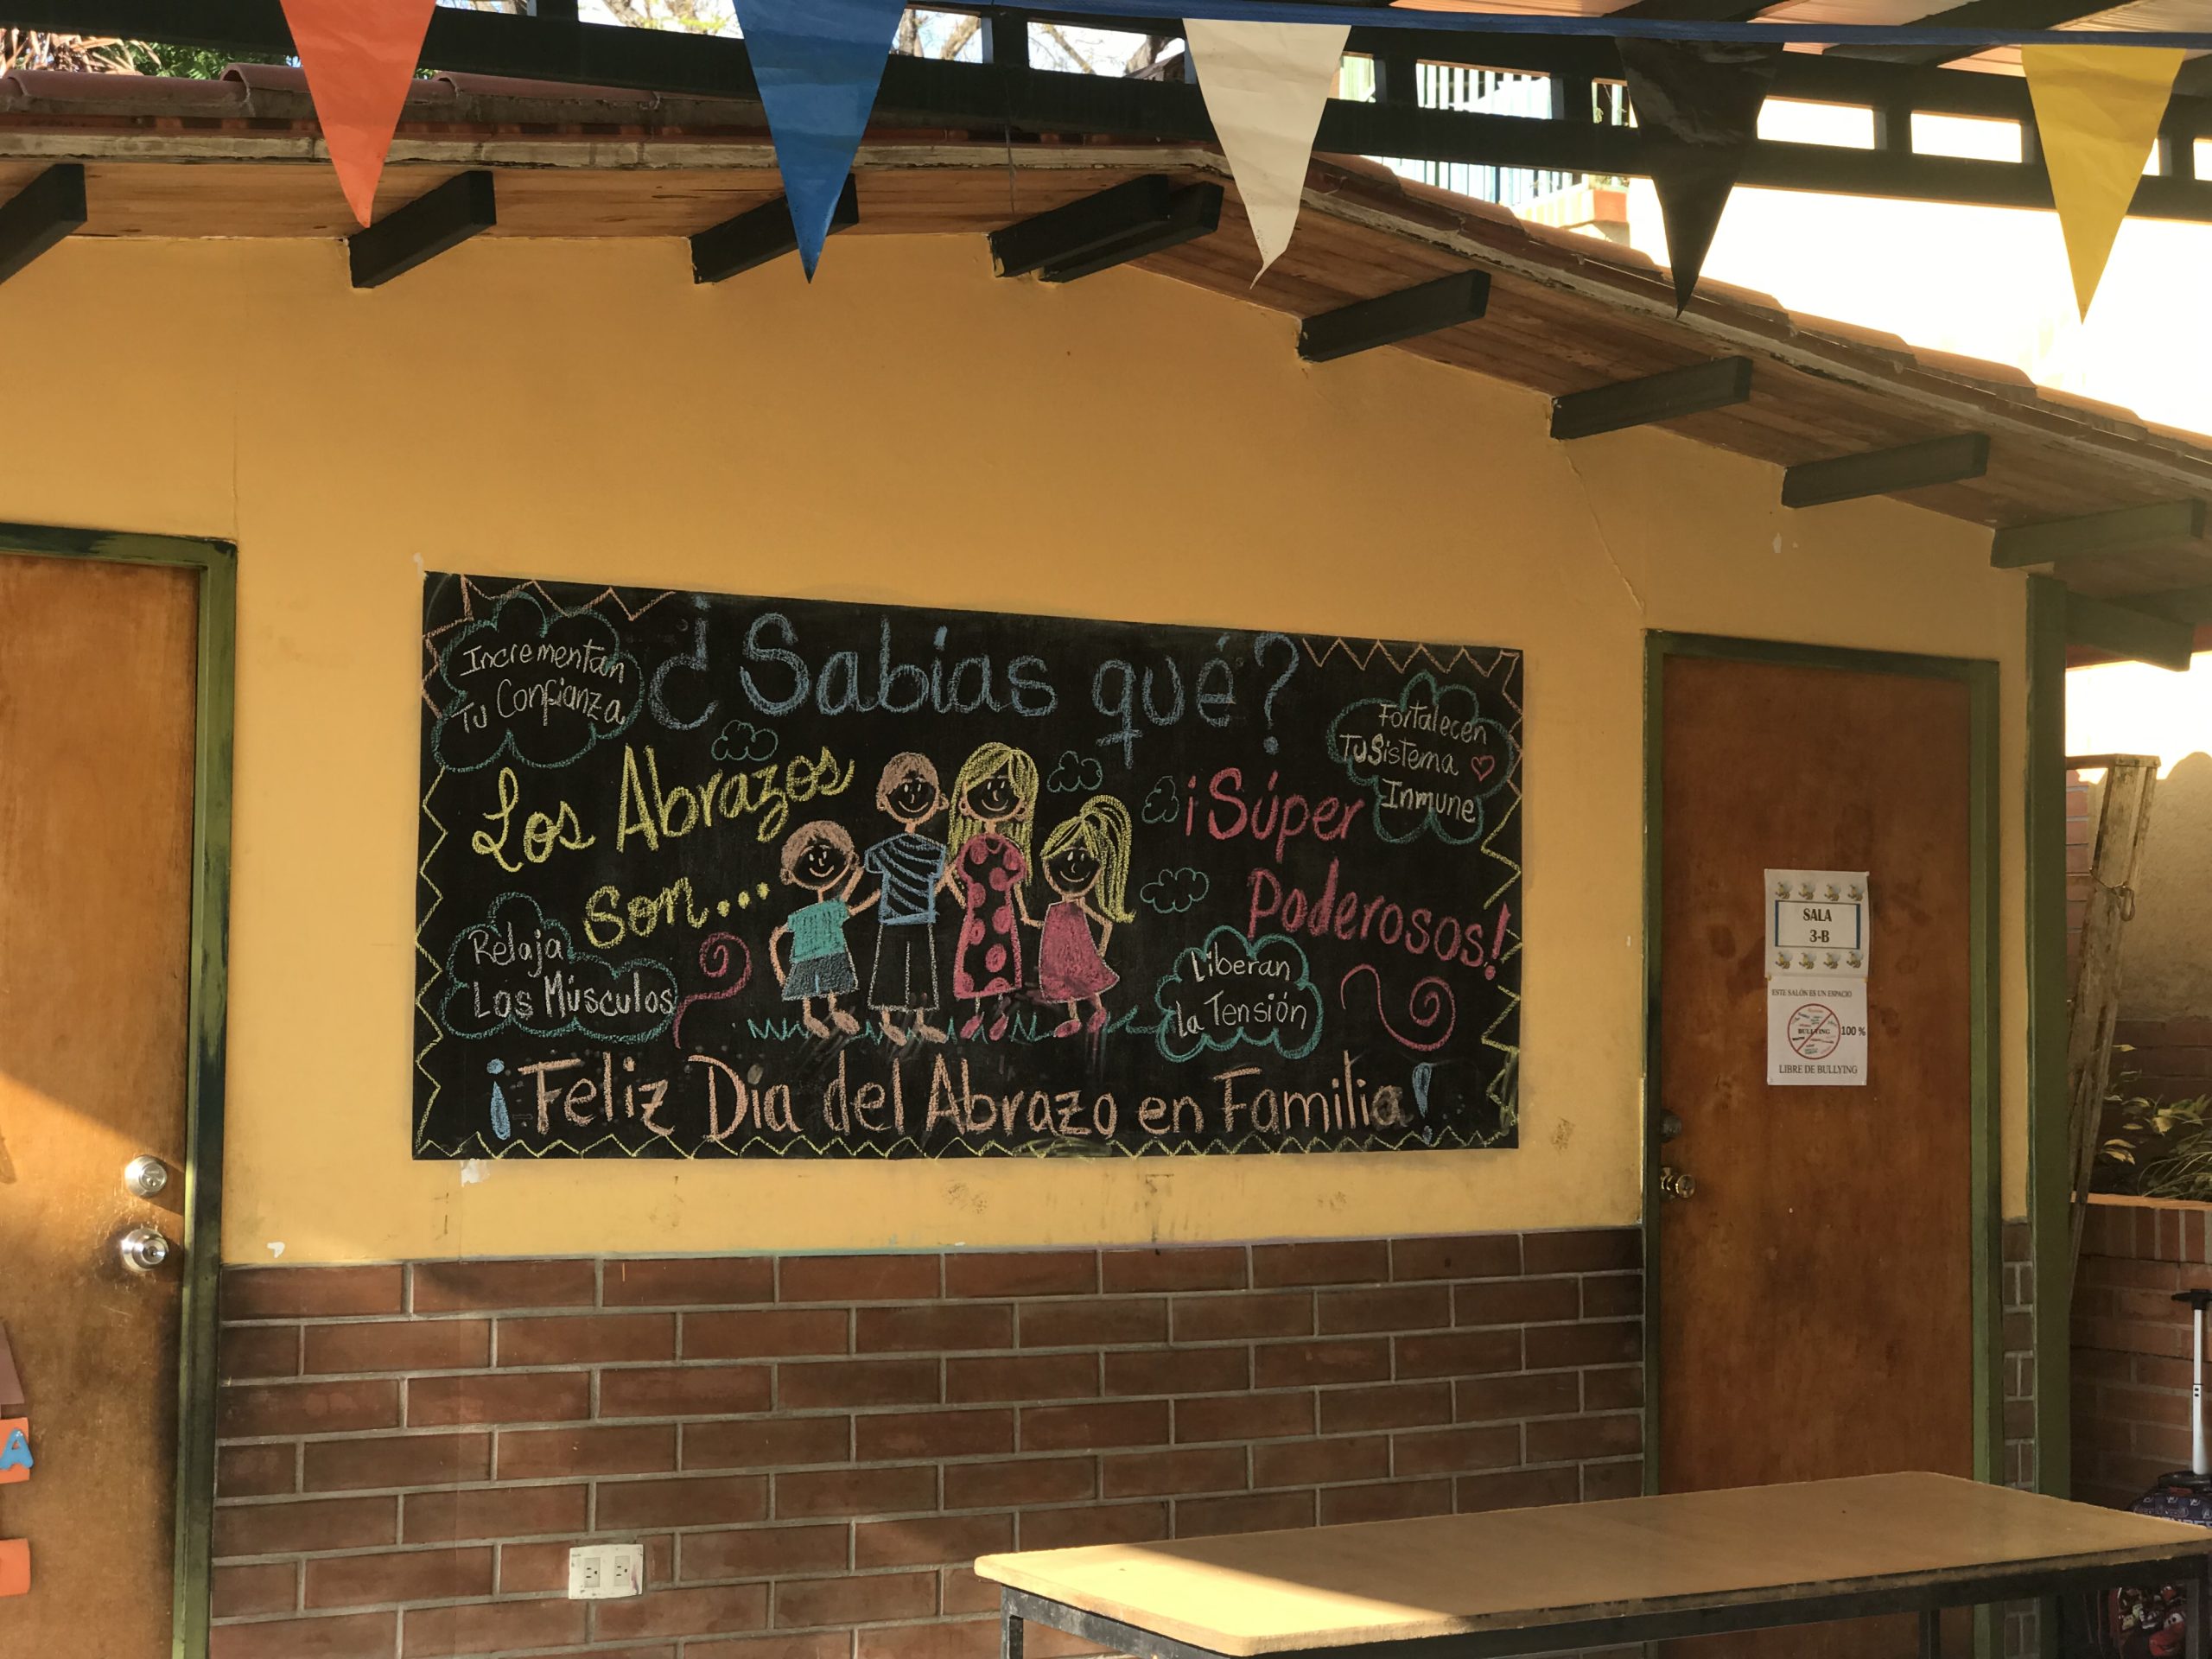 ¿Sabías qué?
Incrementan
Tu Confianza
Los Abrazos
son...
Relaja
Los Músculos
Fortalecen
Tu Sistema
Inmune
¡Súper
Poderosos!
Liberan
La Tensión
¡Feliz Dia del Abrazo en Familia!
SALA
3-B
ESTE SALÓN ES UN ESPACIO
BULLYING
100 %
LIBRE DE BULLYING
A